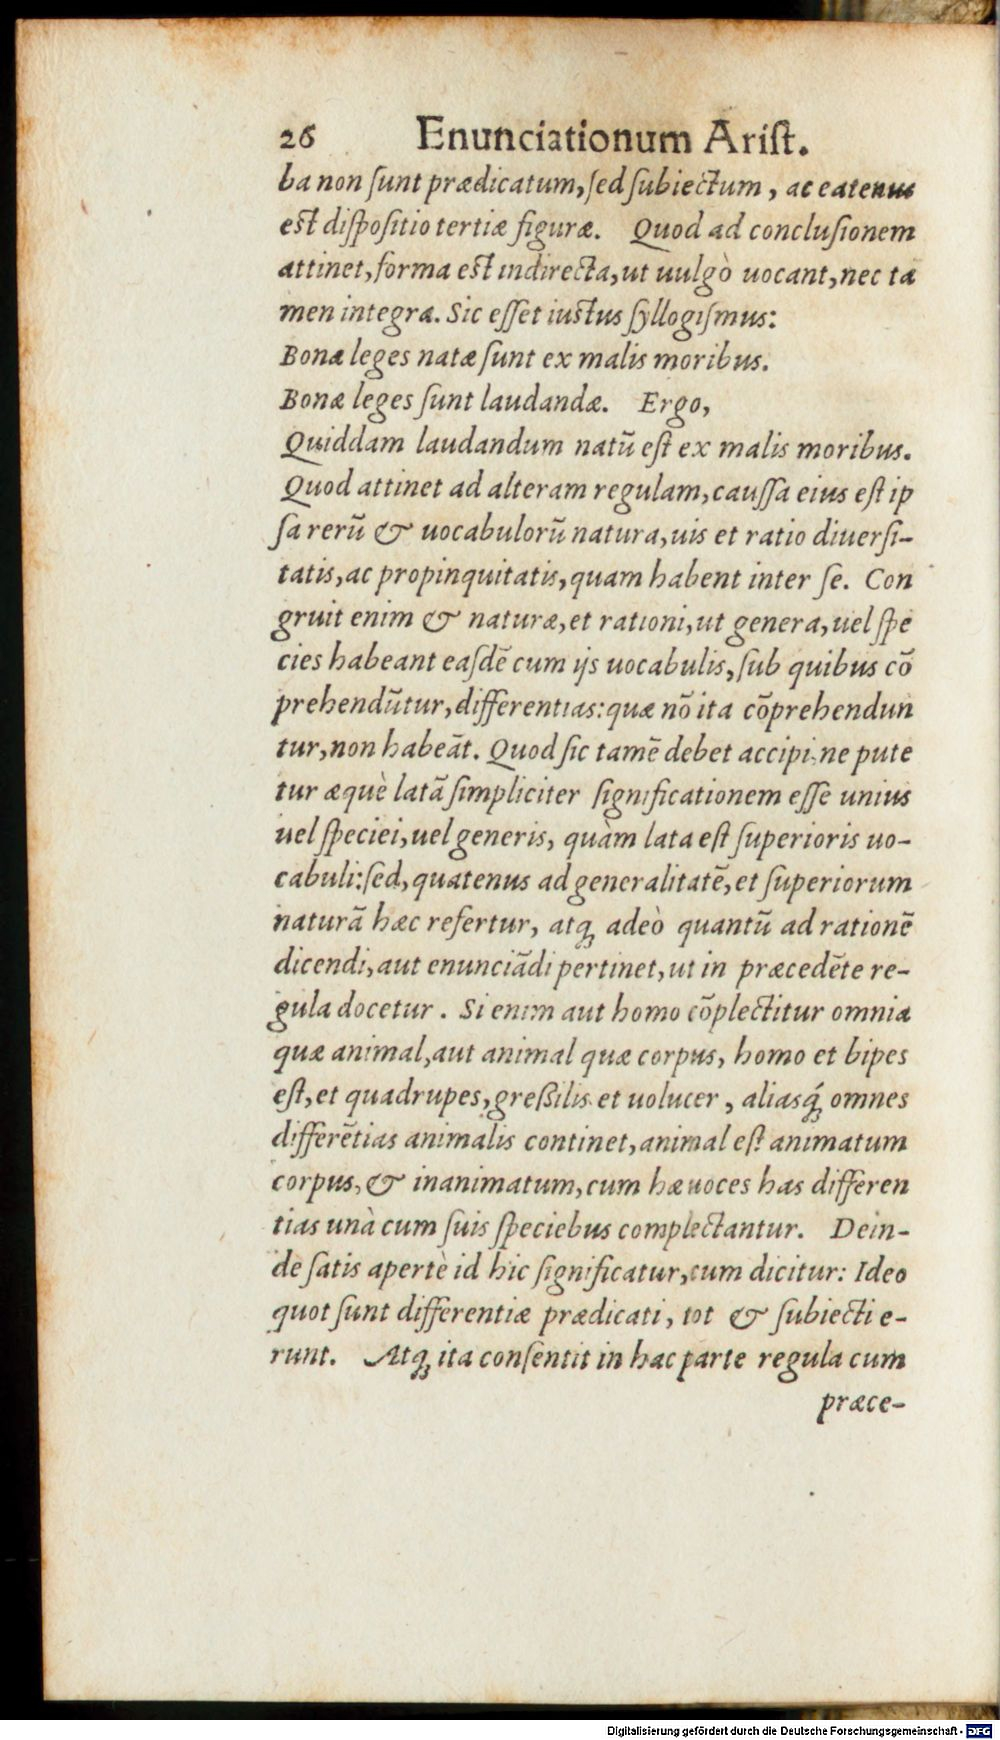 26 Enunciationum Ariſt.
ba non ſunt prædicatum, ſed ſubiectum, ac eatenus
eſt diſpoſitio tertiæ figuræ. Quod ad concluſionem
attinet, forma eſt indirecta, ut uulgò uocant, nec ta
men integra. Sic eſſet iuſtus ſyllogiſmus:
Bonæ leges natæ ſunt ex malis moribus.
Bonæ leges ſunt laudandæ. Ergo,
Quiddam laudandum natũ eſt ex malis moribus.
Quod attinet ad alteram regulam, cauſſa eius eſt ip
ſa rerũ & uocabulorũ natura, uis et ratio diuerſi-
tatis, ac propinquitatis, quam habent inter ſe. Con
gruit enim & naturæ, et rationi, ut genera, uel ſpe
cies habeant eaſdẽ cum ijs uocabulis, ſub quibus cõ
prehendũtur, differentias: quæ nõ ita cõprehendun
tur, non habeãt. Quod ſic tamẽ debet accipi, ne pute
tur æquè latã ſimpliciter ſignificationem eſſe unius
uel ſpeciei, uel generis, quàm lata eſt ſuperioris uo-
cabuli: ſed, quatenus ad generalitatẽ, et ſuperiorum
naturã hæc refertur, atq; adeò quantũ ad rationẽ
dicendi, aut enunciãdi pertinet, ut in præcedẽte re-
gula docetur. Si enim aut homo cõplectitur omnia
quæ animal, aut animal quæ corpus, homo et bipes
eſt, et quadrupes, greßilis et uolucer, aliasq́; omnes
differẽtias animalis continet, animal eſt animatum
corpus, & inanimatum, cum hæ uoces has differen
tias unà cum ſuis ſpeciebus complectantur. Dein-
de ſatis apertè id hic ſignificatur, cum dicitur: Ideo
quot ſunt differentiæ prædicati, tot & ſubiecti e-
runt. Atq; ita conſentit in hac parte regula cum
præce-
Digitalisierung gefördert durch die Deutsche Forschungsgemeinschaft - DFG